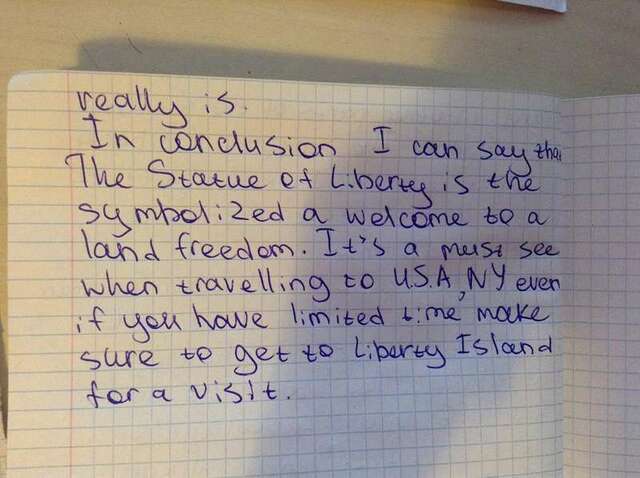 really is.
In conclusion I can say that
The Statue of Liberty is the
symbolized a welcome to a
land freedom. It's a must see
when travelling to U.S.A, NY even
if you have limited time make
sure to get to Liberty Island
for a visit.